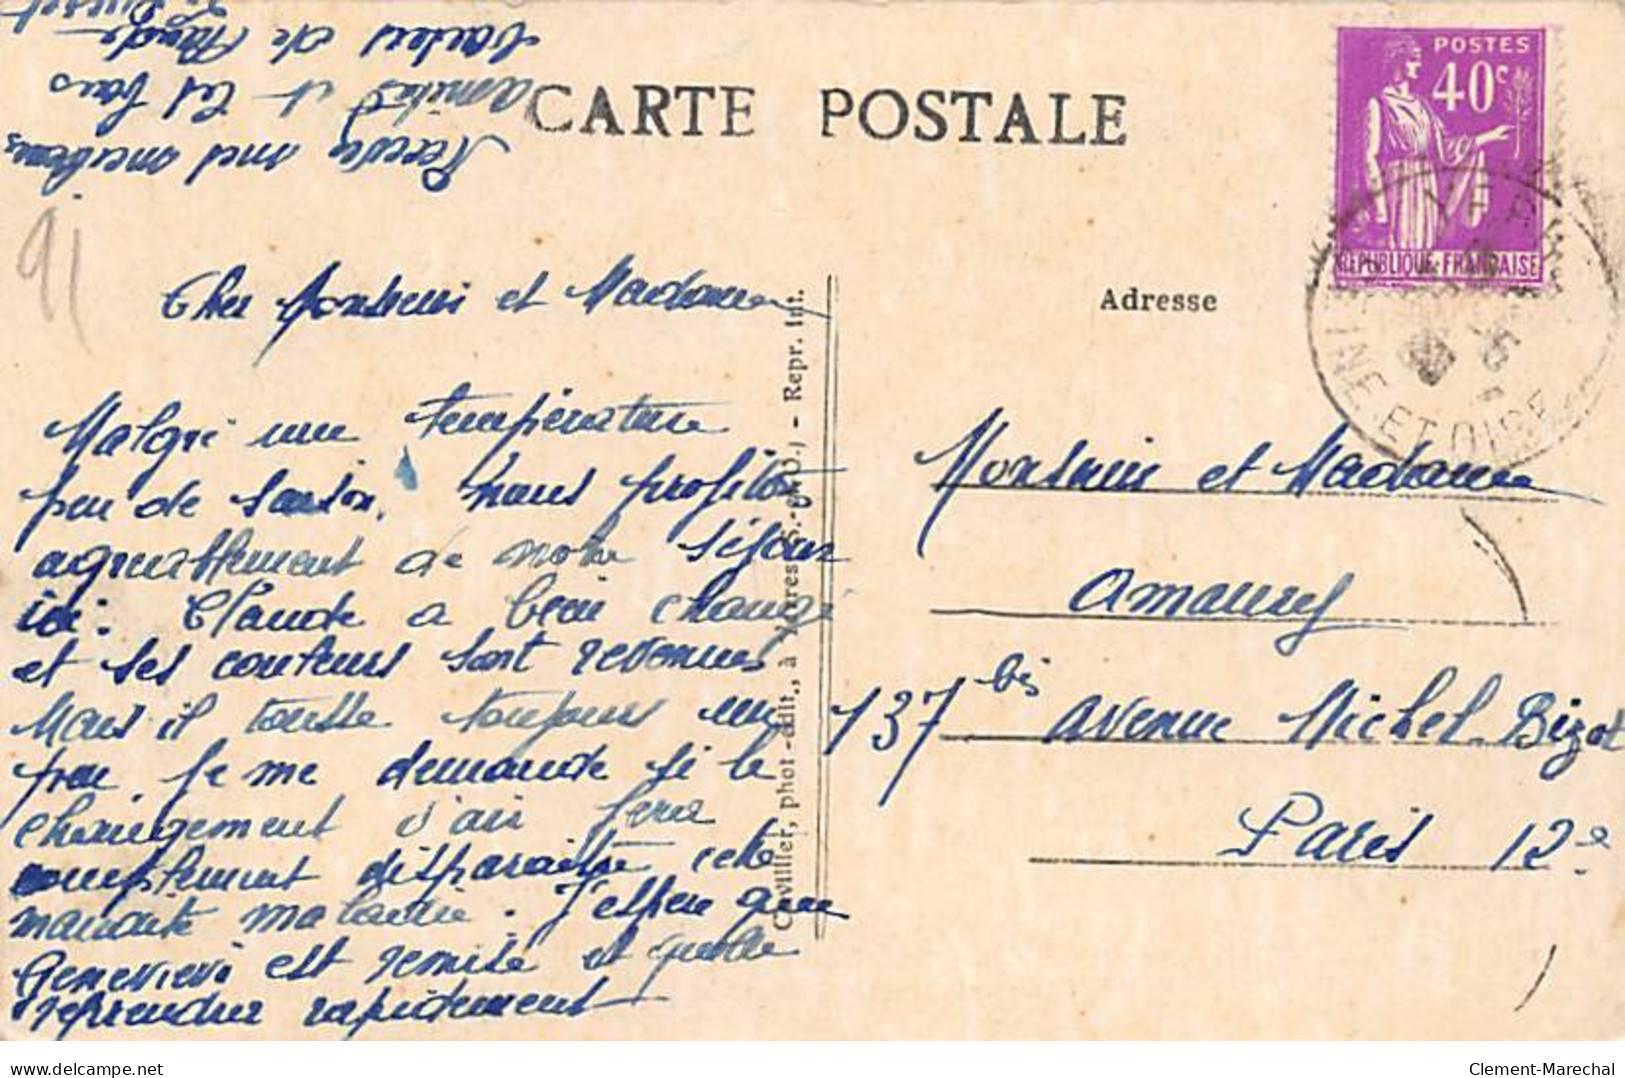 CARTE POSTALE
POSTES
40c
RÉPUBLIQUE FRANÇAISE
INE-ET-OISE
Adresse
91
Cher Monsieur et Madame
Malgré une température
peu de saison, nous profitons
agréablement de notre séjour
ici. Claude a bien changé
et ses couleurs sont revenues
Mais il tousse toujours un
peu je me demande si le
changement d'air fera
complètement disparaître cette
maudite maladie. J'espère que
Geneviève est remise et qu'elle
reprendra rapidement
Recevez mes meilleures
amitiés et les bons
baisers de
Monsieur et Madame
Amaury
137 bis Avenue Michel Bizot
Paris 12e
villier, phot.-édit., à Yerres (S.-&-O.) - Repr. Int.
delcampe.net
Clement-Marechal